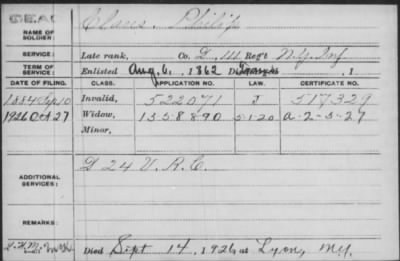 DEAD
NAME OF SOLDIER: Claus, Philip
SERVICE: Late rank, Co. D, 111 Reg't N.Y. Inf.
TERM OF SERVICE: Enlisted Aug. 6, 1862 , 1
DATE OF FILING. CLASS. APPLICATION NO. LAW. CERTIFICATE NO.
1884 Sep 10 Invalid, 522071 J 517329
1926 Oct 27 Widow, 1558890 5-1-20 A-2-5-27
Minor,
ADDITIONAL SERVICES: D 24 V.R.C.
REMARKS:
Died Sept 14, 1926 at Lyon, N.Y.